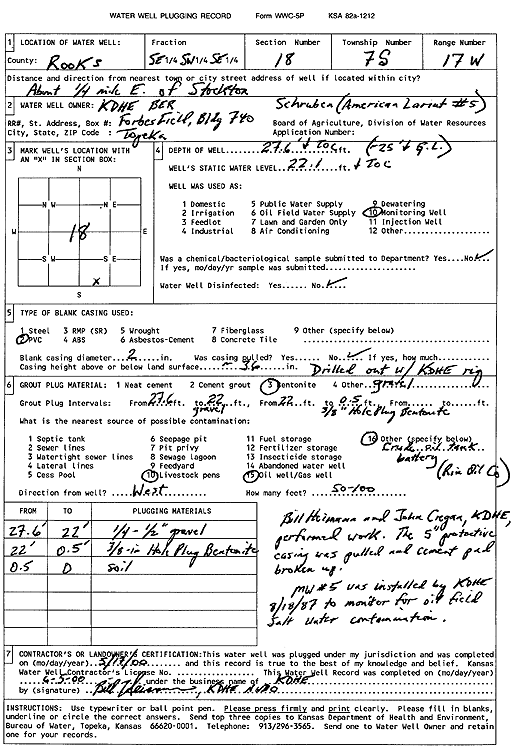 WATER WELL PLUGGING RECORD Form WWC-5P KSA 82a-1212
1 LOCATION OF WATER WELL: Fraction Section Number Township Number Range Number
County: Rooks SE 1/4 SW 1/4 SE 1/4 18 7S 17W
Distance and direction from nearest town or city street address of well if located within city?
About 1/4 mile E. of Stockton
2 WATER WELL OWNER: KDHE BER Schruben (American Lariat #5)
RR#, St. Address, Box #: Forbes Field, Bldg 740 Board of Agriculture, Division of Water Resources
City, State, ZIP Code : Topeka Application Number:
3 MARK WELL'S LOCATION WITH AN "X" IN SECTION BOX:
N
N W N E
W 18 E
S W S E
X
S
4 DEPTH OF WELL 27.6' ↓ TOC ft. (~25' ↓ G.L.)
WELL'S STATIC WATER LEVEL 22.1 ft. ↓ TOC
WELL WAS USED AS:
1 Domestic 5 Public Water Supply 9 Dewatering
2 Irrigation 6 Oil Field Water Supply 10 Monitoring Well
3 Feedlot 7 Lawn and Garden Only 11 Injection Well
4 Industrial 8 Air Conditioning 12 Other
Was a chemical/bacteriological sample submitted to Department? Yes.....No ✓
If yes, mo/day/yr sample was submitted
Water Well Disinfected: Yes...... No ✓
5 TYPE OF BLANK CASING USED:
1 Steel 3 RMP (SR) 5 Wrought 7 Fiberglass 9 Other (specify below)
2 PVC 4 ABS 6 Asbestos-Cement 8 Concrete Tile
Blank casing diameter 2 in. Was casing pulled? Yes...... No ✓ If yes, how much
Casing height above or below land surface ~ 36 in. Drilled out w/ KDHE rig
6 GROUT PLUG MATERIAL: 1 Neat cement 2 Cement grout 3 Bentonite 4 Other gravel
Grout Plug Intervals: From 27.6 ft. to 22 ft., From 22 ft. to 0.5 ft., From...... to...... ft.
gravel 3/8" Hole Plug Bentonite
What is the nearest source of possible contamination:
1 Septic tank 6 Seepage pit 11 Fuel storage 16 Other (specify below)
2 Sewer lines 7 Pit privy 12 Fertilizer storage Crude oil Tank
3 Watertight sewer lines 8 Sewage lagoon 13 Insecticide storage battery
4 Lateral lines 9 Feedyard 14 Abandoned water well
5 Cess Pool 10 Livestock pens 15 Oil well/Gas well (Rim Oil Co)
Direction from well? West How many feet? 50-100
FROM TO PLUGGING MATERIALS
27.6' 22' 1/4 - 1/2" gravel
22' 0.5' 3/8-in Hole Plug Bentonite
0.5 0 soil
Bill Heimann and John Cregan, KDHE,
performed work. The 5" protective
casing was pulled and cement pad
broken up.
MW #5 was installed by KDHE
8/18/87 to monitor for oil field
salt water contamination.
7 CONTRACTOR'S OR LANDOWNER'S CERTIFICATION: This water well was plugged under my jurisdiction and was completed
on (mo/day/year) 5/17/00 and this record is true to the best of my knowledge and belief. Kansas
Water Well Contractor's License No. This Water Well Record was completed on (mo/day/year)
6-5-00 under the business name of KDHE
by (signature) Bill Heimann, KDHE
INSTRUCTIONS: Use typewriter or ball point pen. Please press firmly and print clearly. Please fill in blanks,
underline or circle the correct answers. Send top three copies to Kansas Department of Health and Environment,
Bureau of Water, Topeka, Kansas 66620-0001. Telephone: 913/296-3565. Send one to Water Well Owner and retain
one for your records.